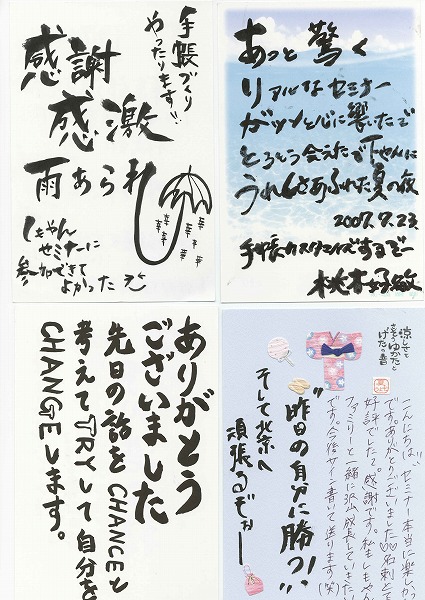 手帳づくり
やったりまっす!!
感謝
感激
雨あられ
しもやん
セミナーに
参加できて
よかった
あっと驚く
リアルなセミナー
ガツンと心に響いたで
とうとう会えたで下やんに
うれしさあふれた夏の夜
2007.7.23.
手帳カスタマイズするぞー
ありがとう
ございました
先日の話をCHANCEと
考えてTRYして自分を
CHANGEします。
涼を
げたの音
こんにちは。セミナー本当に楽しかっ
です。ありがとうございました♡♡名刺とても
好評でした。感謝です。私もしもやん
ファミリーと一緒に沢山成長していきたい
です。今後サイン書いて送ります(笑)
"昨日の自分に勝つ!"
そして北京へ
頑張るぞぉー